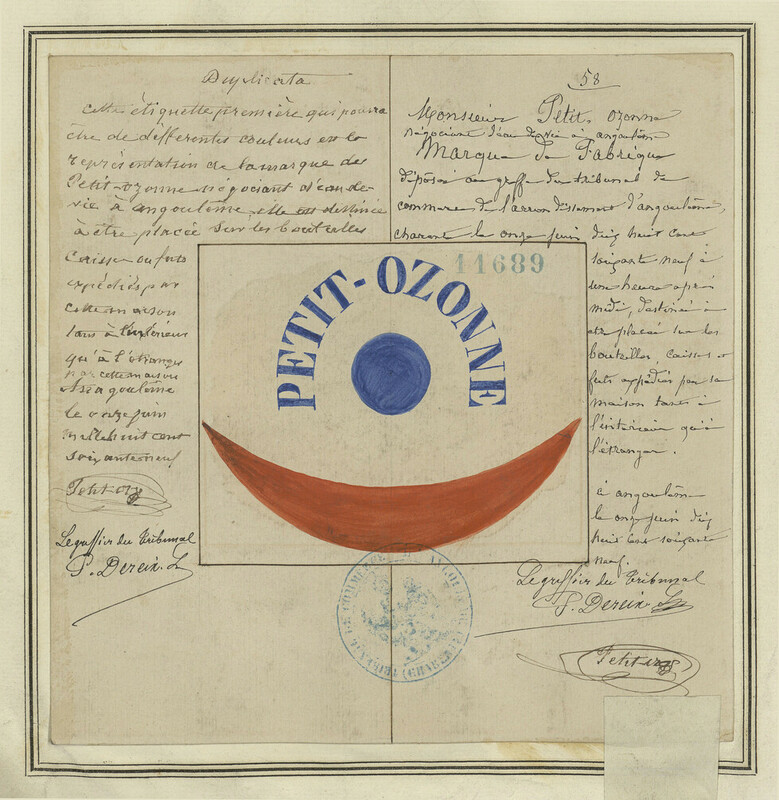 Duplicata
cette étiquette première qui pourra
être de differentes couleurs est la
représentation de la marque de
Petit-ozonne négociant d'eau-de-
vie à angoulême elle est destinée
à être placée sur les bouteilles
Caisse ou futs
expédiés par
cette maison
tans à l'intérieur
qu'à l'étranger
par cette maison
A angoulême
le onze juin
mille huit cent
soixante neuf
Petit oz
Le greffier du Tribunal
P. Dereix
58
Monsieur Petit ozonne
négociant d'eau de vie à angoulême
Marque de Fabrique
déposé au greffe du tribunal de
commerce de l'arrondissement d'angoulême,
charente le onze juin dix huit cent
soixante neuf à
une heure après
midi, destinée à
être placée sur les
bouteilles, caisses et
futs expédiés par sa
maison tans à
l'intérieur qu'à
l'étranger.
à angoulême
le onze juin dix
huit cent soixante
neuf.
Le greffier du Tribunal
P. Dereix
Petit oz
11689
PETIT-OZONNE
TRIBUNAL DE COMMERCE